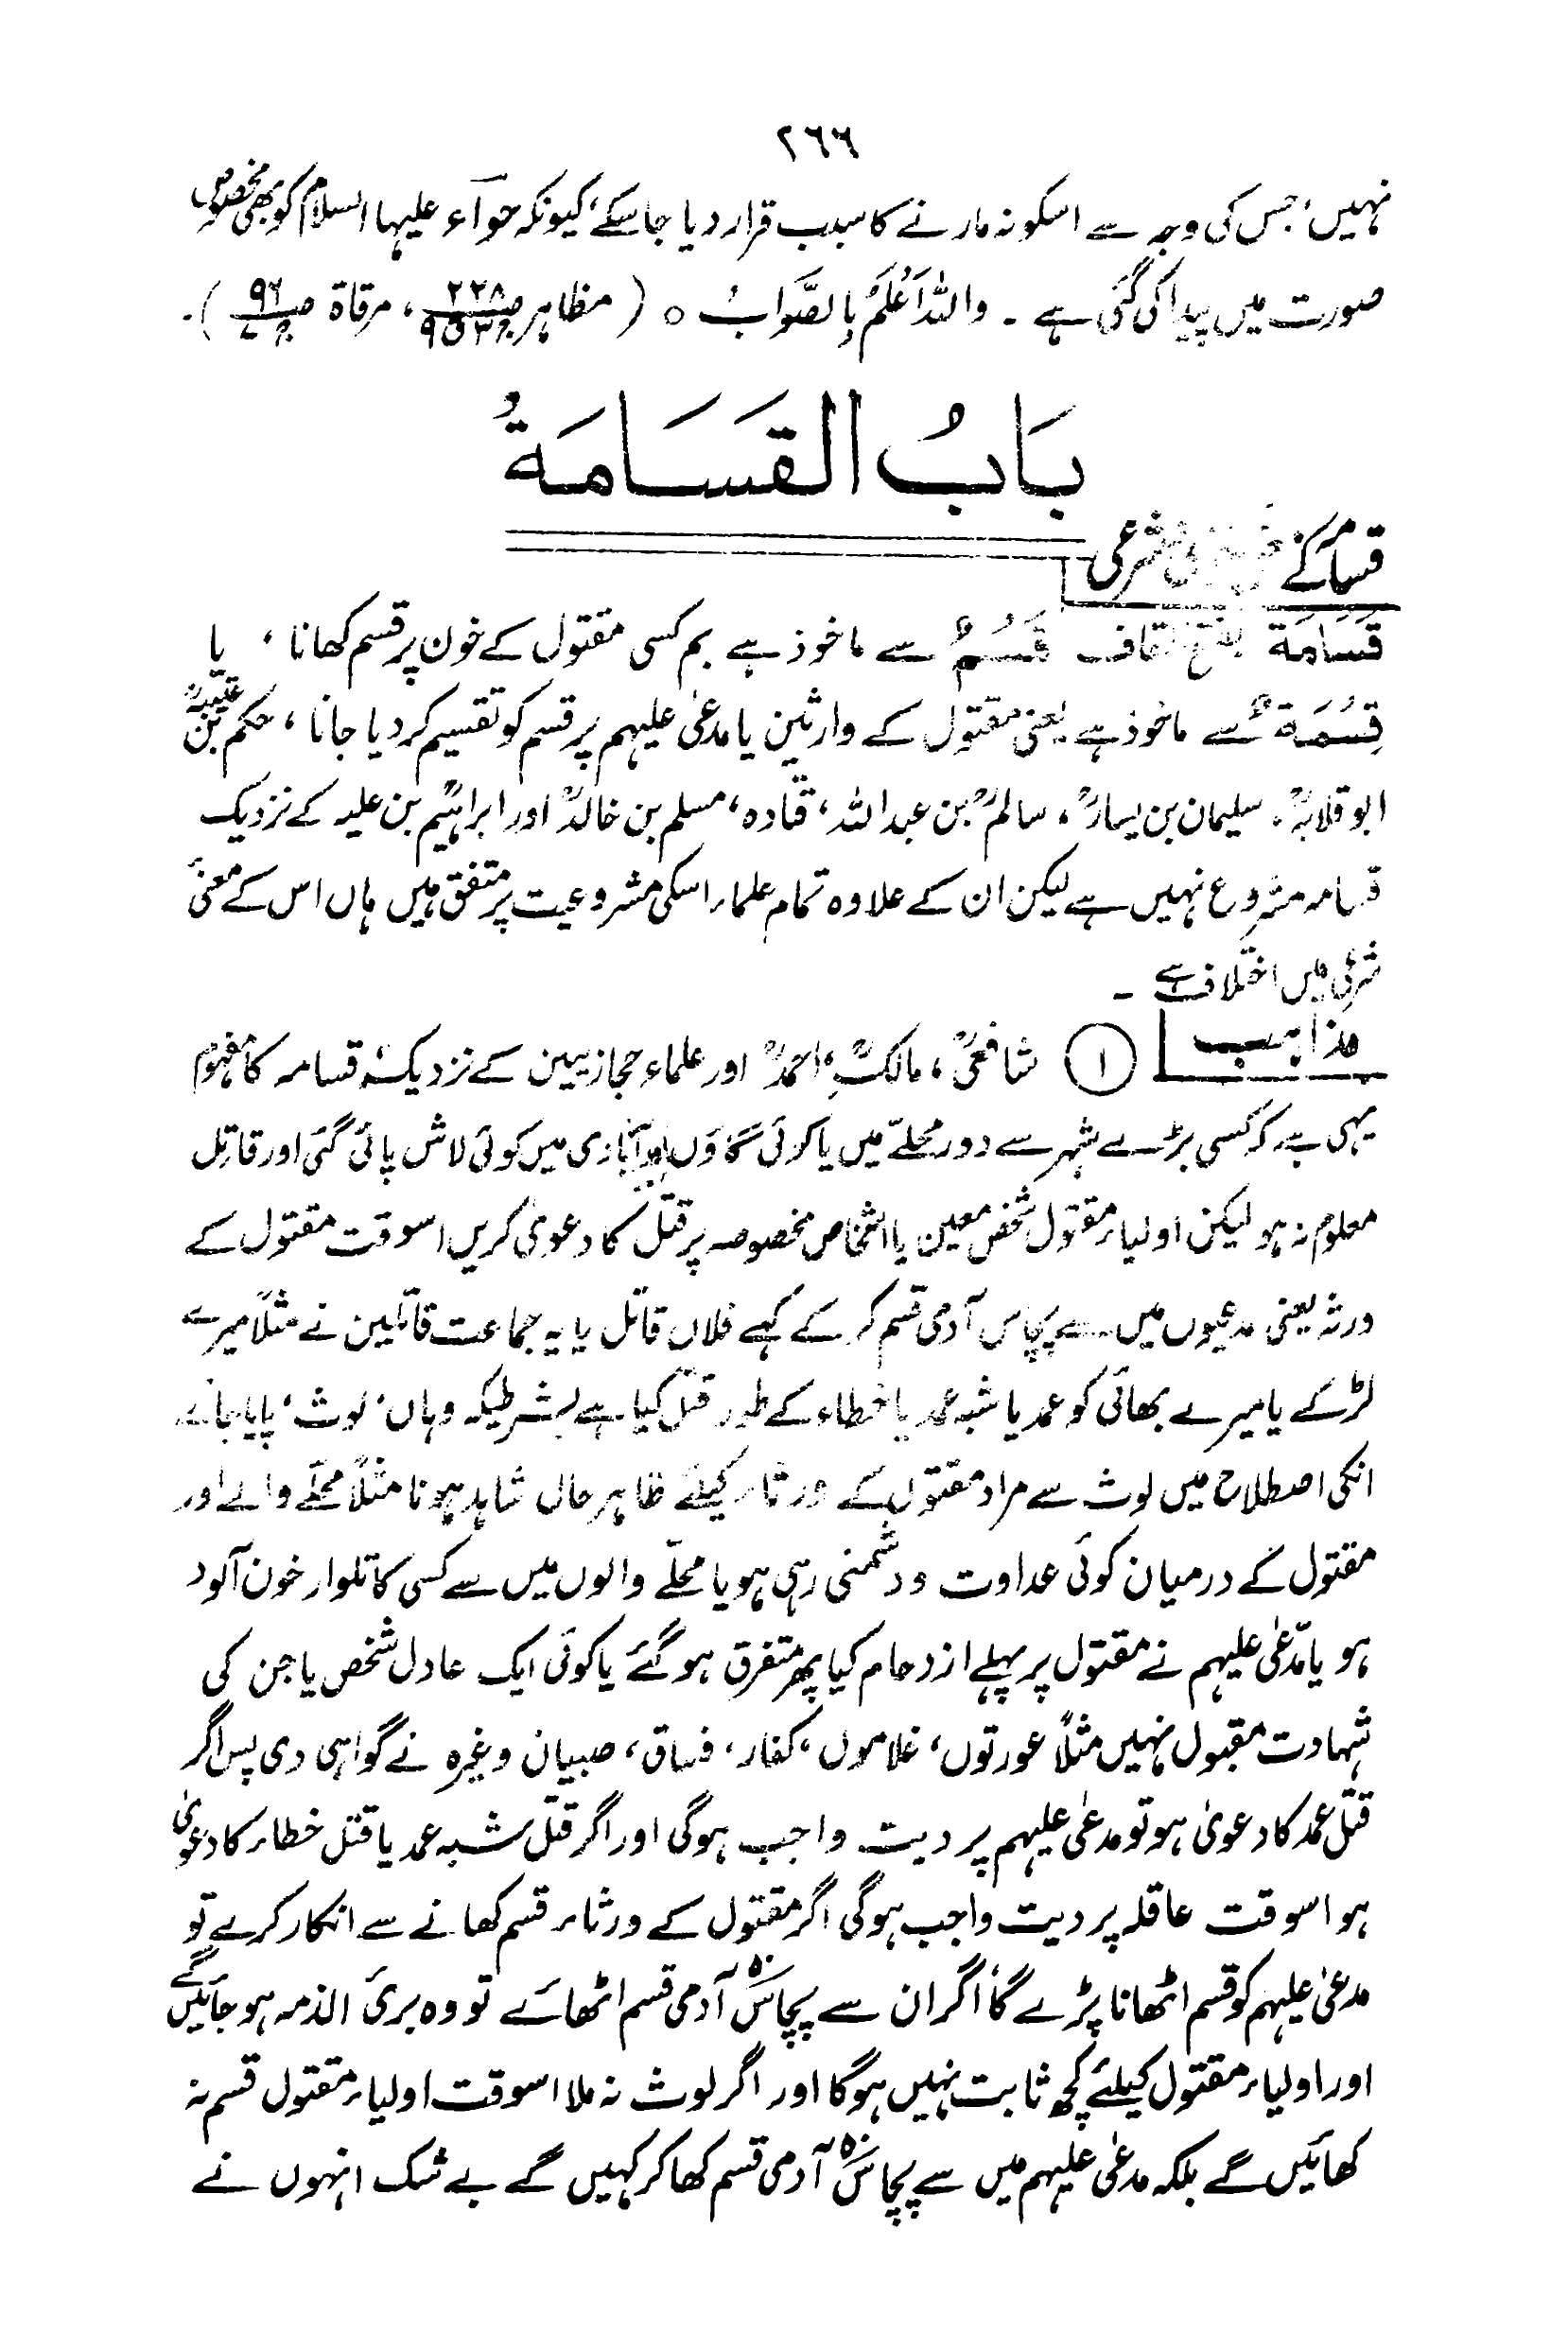 ۲۶۶
نہیں، جس کی وجہ سے اسکو نہ مارنے کا سبب قرار دیا جا سکے، کیونکہ حوآء علیہا السلام کو بھی مخصوص
صورت میں پیدا کی گئی ہے ۔ واللہ اَعْلَمُ بِالصَّوَابُ ○ ( مظاہر ، مرقاة ) ۔
بَابُ القَسَامَةُ
قسامہ کے شرعی
قَسَامَة بفتح القاف قَسَمٌ سے ماخوذ ہے بم کسی مقتول کے خون پر قسم کھانا ، یا
قِسْمَةٌ سے ماخوذ ہے یعنی مقتول کے وارثین یا مدعیٰ علیہم پر قسم کو تقسیم کر دیا جانا ، حکم بن عتیبہؒ
ابو قلابہؒ، سلیمان بن یسارؒ، سالمؒ بن عبد اللہ، قتادہ، مسلم بن خالدؒ اور ابراہیمؒ بن علیہ کے نزدیک
قسامہ مشروع نہیں ہے لیکن ان کے علاوہ تمام علماء اسکی مشروعیت پر متفق ہیں ہاں اس کے معنیٰ
شرعی میں اختلاف ہے ۔
مذاہب ① شافعیؒ ، مالکؒ ، احمدؒ اور علماء حجازیین کے نزدیک قسامہ کا مفہوم
یہی ہے کہ کسی بڑے شہر سے دور محلّے میں یا کوئی گاؤں اور آبادی میں کوئی لاش پائی گئی اور قاتل
معلوم نہ ہو لیکن اولیاء مقتول شخص معین یا اشخاص مخصوصہ پر قتل کا دعویٰ کریں اسوقت مقتول کے
ورثہ یعنی مدعیوں میں سے پچاس آدمی قسم کر کے کہے فلاں قاتل یا یہ جماعت قاتلین نے مثلاً میرے
لڑکے یا میرے بھائی کو عمد یا شبہ عمد یا خطاء کے طور قتل کیا ہے بشرطیکہ وہاں ، لوث ، پایا جائے
انکی اصطلاح میں لوث سے مراد مقتول کے ورثاء کیلئے ظاہر حال شاہد ہونا مثلاً محلّے والے اور
مقتول کے درمیان کوئی عداوت و دشمنی رہی ہو یا محلّے والوں میں سے کسی کا تلوار خون آلود
ہو یا مدّعیٰ علیہم نے مقتول پر پہلے ازدحام کیا پھر متفرق ہو گئے یا کوئی ایک عادل شخص یا جن کی
شہادت مقبول نہیں مثلاً عورتوں، غلاموں ، کفار ، فساق ، صبیان وغیرہ نے گواہی دی پس اگر
قتل عمد کا دعویٰ ہو تو مدعیٰ علیہم پر دیت واجب ہوگی اور اگر قتل شبہ عمد یا قتل خطاء کا دعویٰ
ہو اسوقت عاقلہ پر دیت واجب ہوگی اگر مقتول کے ورثاء قسم کھانے سے انکار کرے تو
مدعیٰ علیہم کو قسم اٹھانا پڑے گا اگر ان سے پچاس ۵۰ آدمی قسم اٹھائے تو وہ بریٔ الذمہ ہو جائیں گے
اور اولیاء مقتول کیلئے کچھ ثابت نہیں ہوگا اور اگر لوث نہ ملا اسوقت اولیاء مقتول قسم نہ
کھائیں گے بلکہ مدعیٰ علیہم میں سے پچاس ۵۰ آدمی قسم کھا کر کہیں گے بے شک انہوں نے